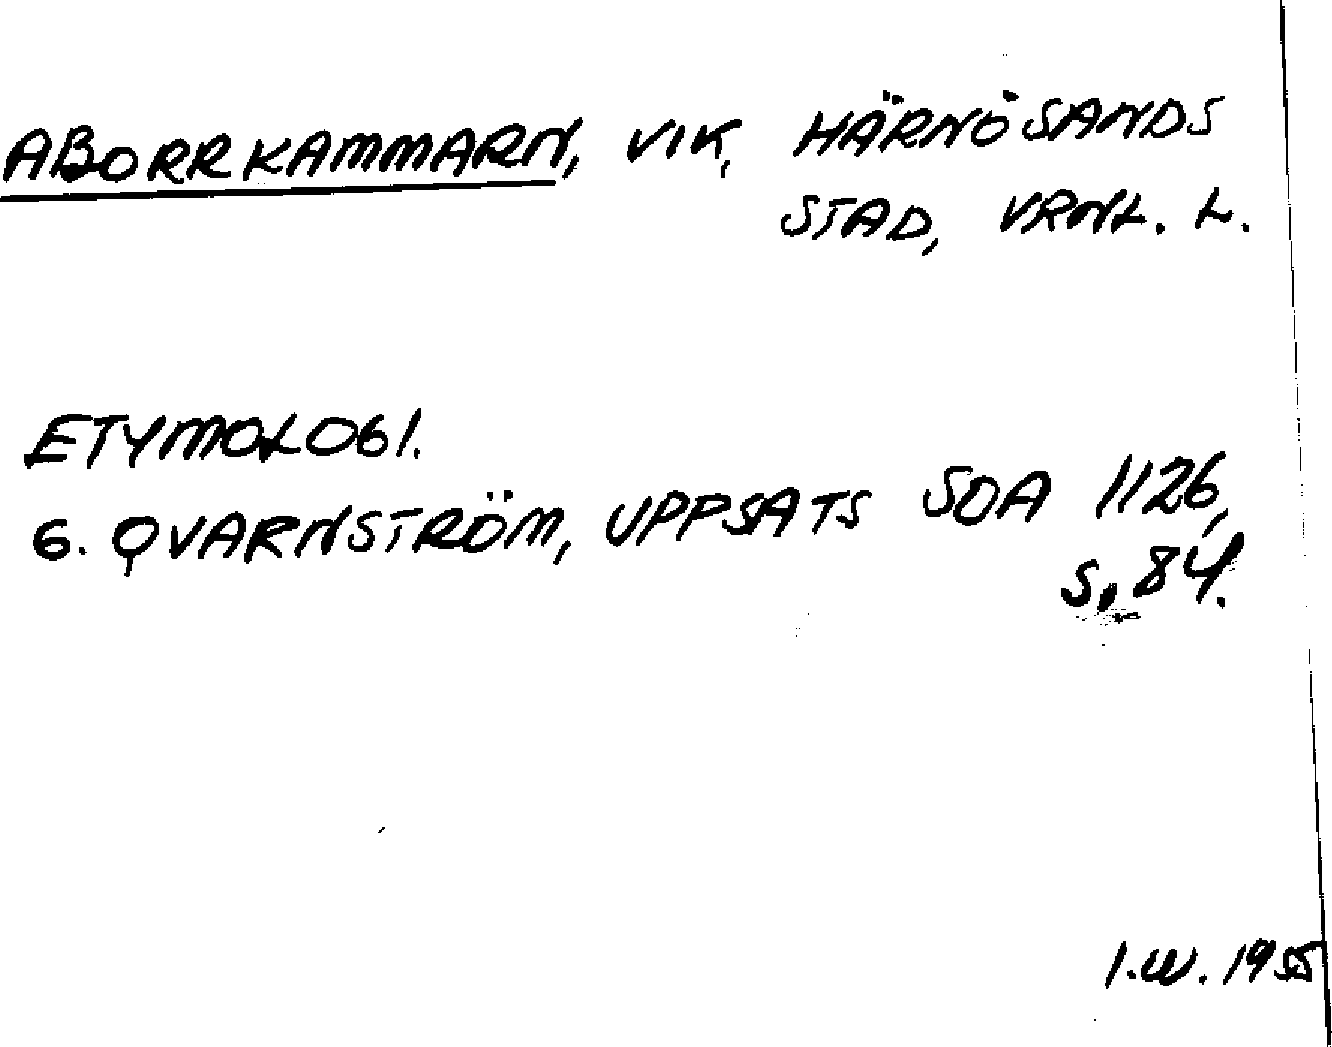 ABORRKAMMARN, VIK, HÄRNÖSANDS
STAD, VRML. L.
ETYMOLOGI.
G. QVARNSTRÖM, UPPSATS SOA 1126,
S. 84.
I.W. 1955